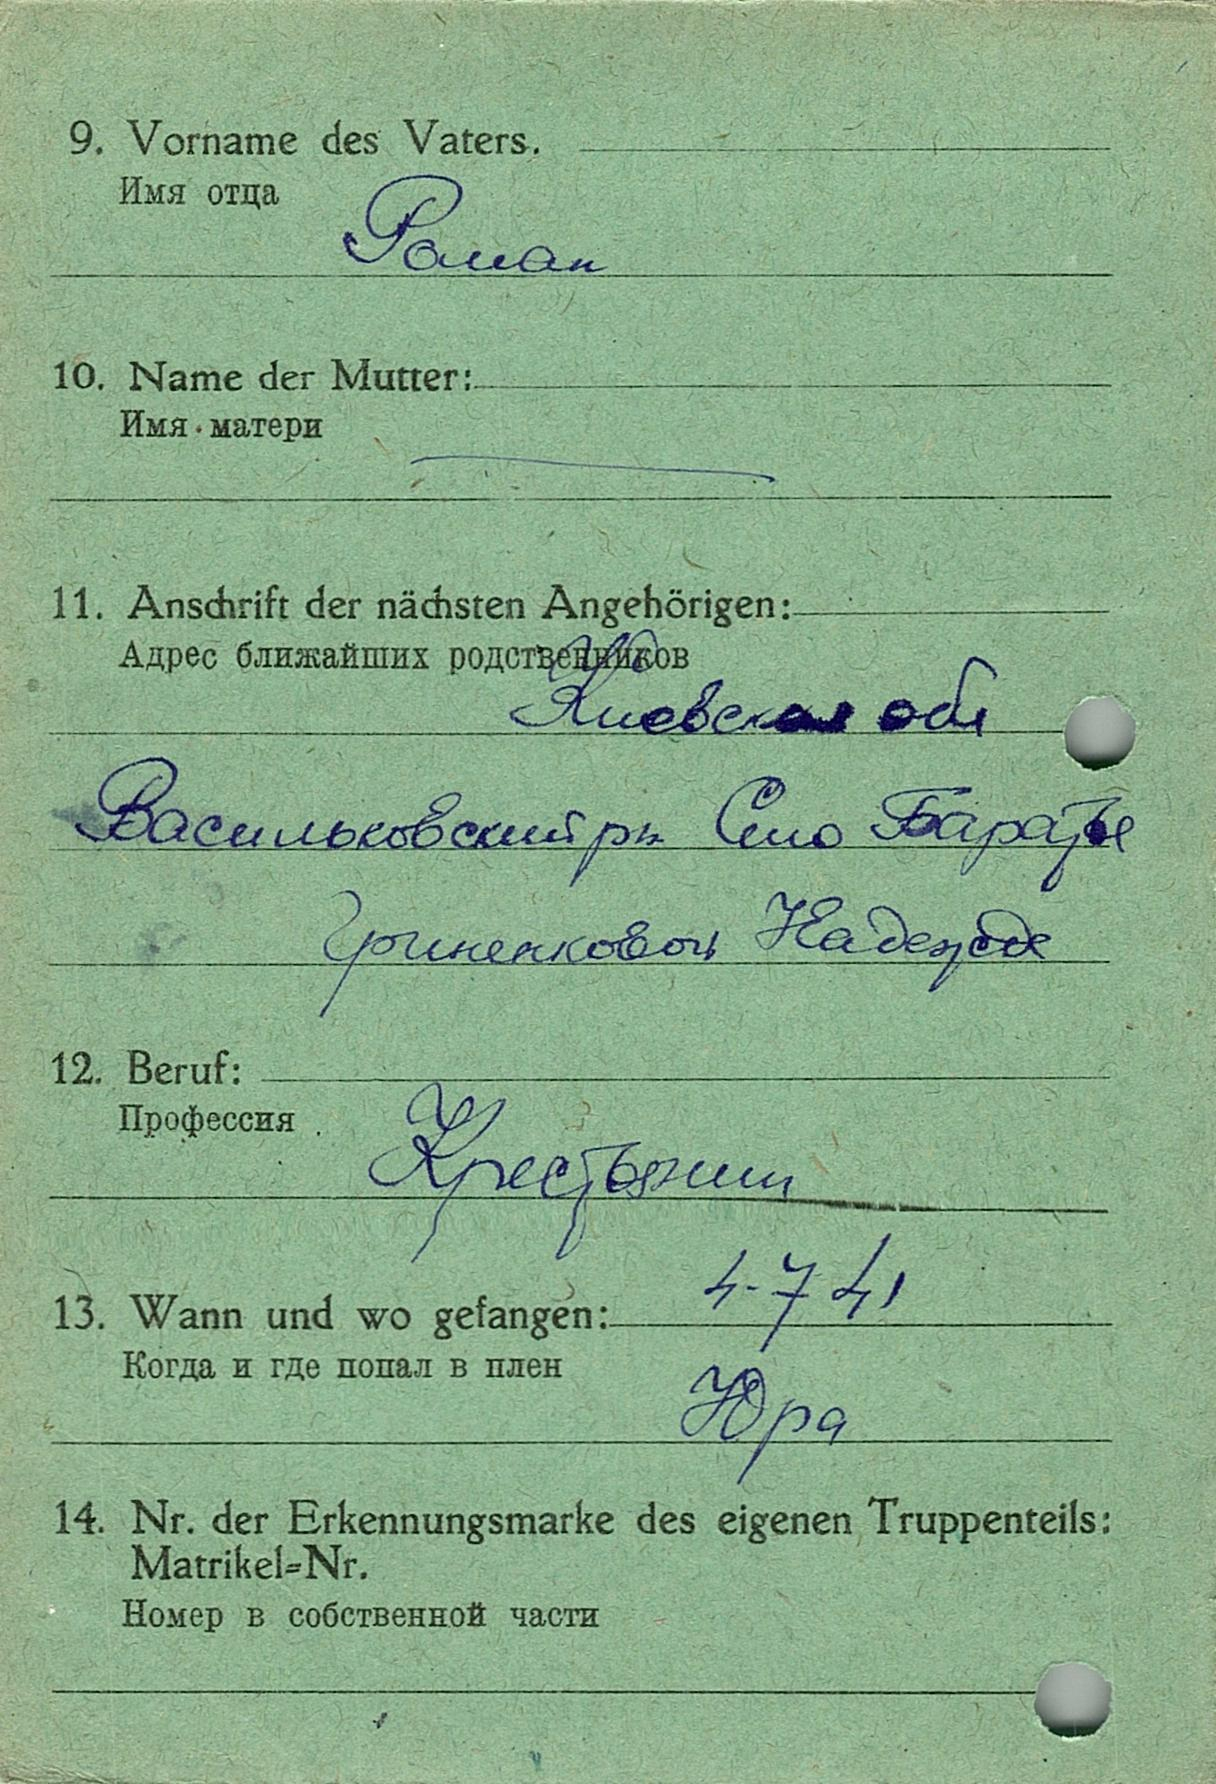 9. Vorname des Vaters.
Имя отца
Роман
10. Name der Mutter:
Имя матери
11. Anschrift der nächsten Angehörigen:
Адрес ближайших родственников
Киевская обл
Васильковский рн Село
Гриненковой Надежде
12. Beruf:
Профессия
Крестьянин
13. Wann und wo gefangen: 4-7 41
Когда и где попал в плен
Юра
14. Nr. der Erkennungsmarke des eigenen Truppenteils:
Matrikel=Nr.
Номер в собственной части